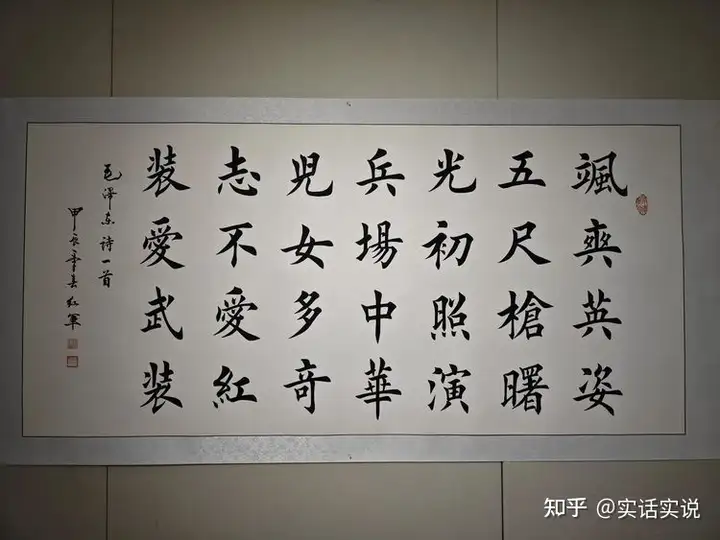 颯爽英姿
五尺槍曙
光初照演
兵場中華
兒女多奇
志不愛紅
装愛武装
毛澤东诗一首
甲辰季春红军
知乎 @实话实说